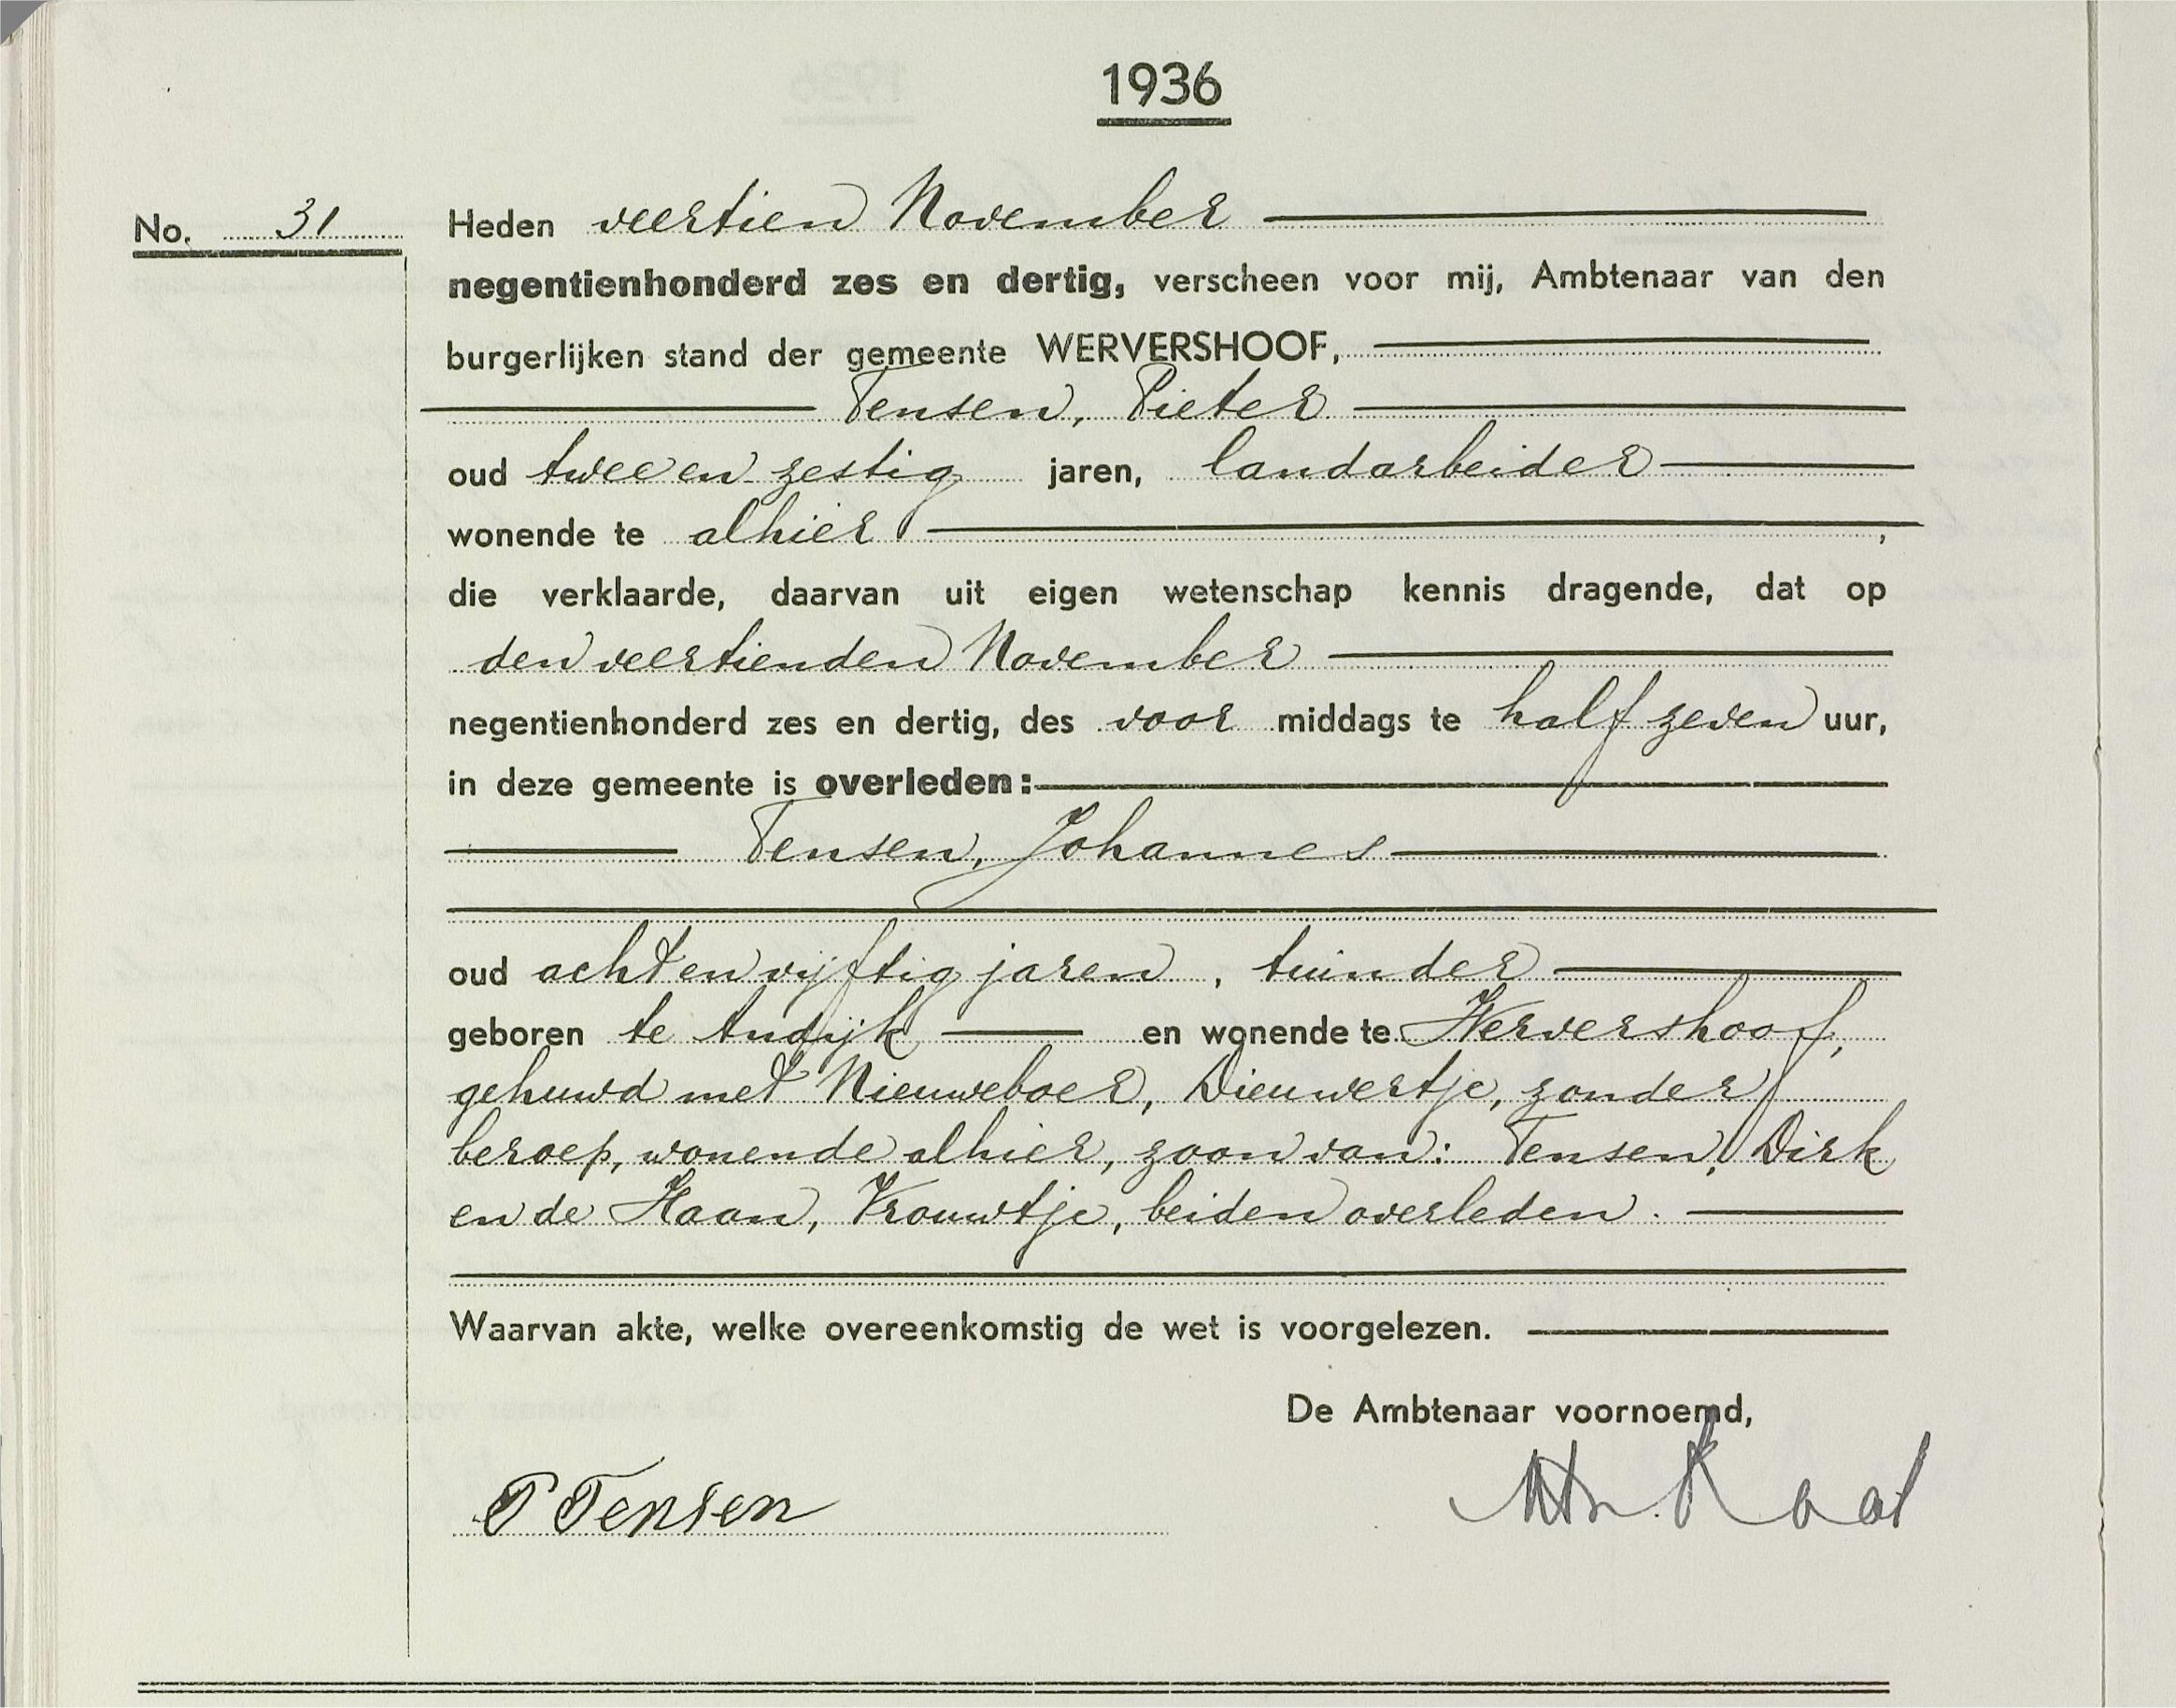 1936
No. 31
Heden veertien November
negentienhonderd zes en dertig, verscheen voor mij, Ambtenaar van den
burgerlijken stand der gemeente WERVERSHOOF,
Tensen, Pieter
oud twee en zestig jaren, landarbeider
wonende te alhier ,
die verklaarde, daarvan uit eigen wetenschap kennis dragende, dat op
den veertienden November
negentienhonderd zes en dertig, des voor middags te half zeven uur,
in deze gemeente is overleden:
Tensen, Johannes
oud acht en vijftig jaren, tuinder
geboren te Andijk en wonende te Wervershoof,
gehuwd met Nieuweboer, Dieuwertje, zonder
beroep, wonende alhier, zoon van: Tensen, Dirk
en de Haan, Vrouwtje, beiden overleden.
Waarvan akte, welke overeenkomstig de wet is voorgelezen.
De Ambtenaar voornoemd,
P Tensen